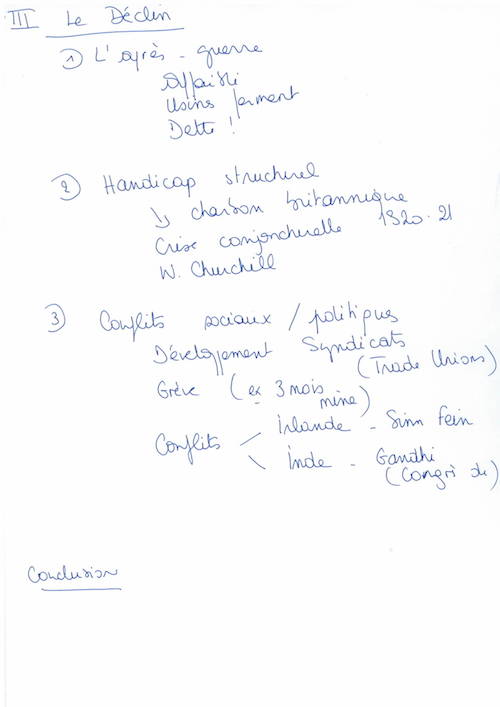 III Le Déclin
1) L'après-guerre
Affaibli
Usins ferment
Dette !
2) Handicap structurel
↳ charbon britannique
Crise conjoncturelle 1920-21
W. Churchill
3) Conflits sociaux / politiques
Développement Syndicats
(Trade Unions)
Grève (ex 3 mois
mine)
Conflits
Irlande - Sinn Fein
Inde - Gandhi
(Congrì de)
Conclusion